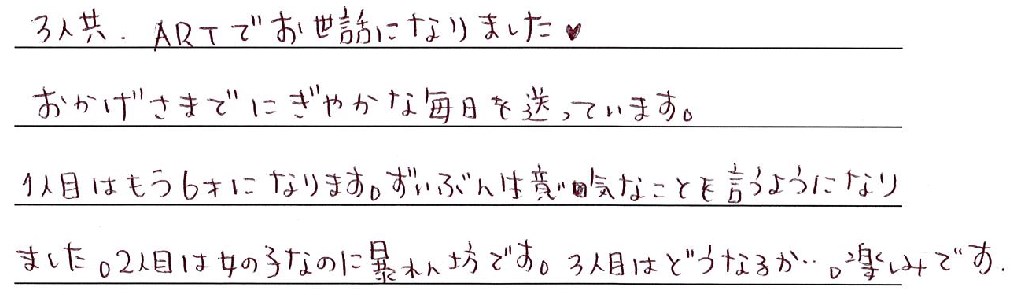 3人共.ARTでお世話になりました♥
おかげさまでにぎやかな毎日を送っています。
1人目はもう6才になります。ずいぶん生意気なことを言うようになり
ました。2人目は女の子なのに暴れん坊です。3人目はどうなるか…。楽しみです.